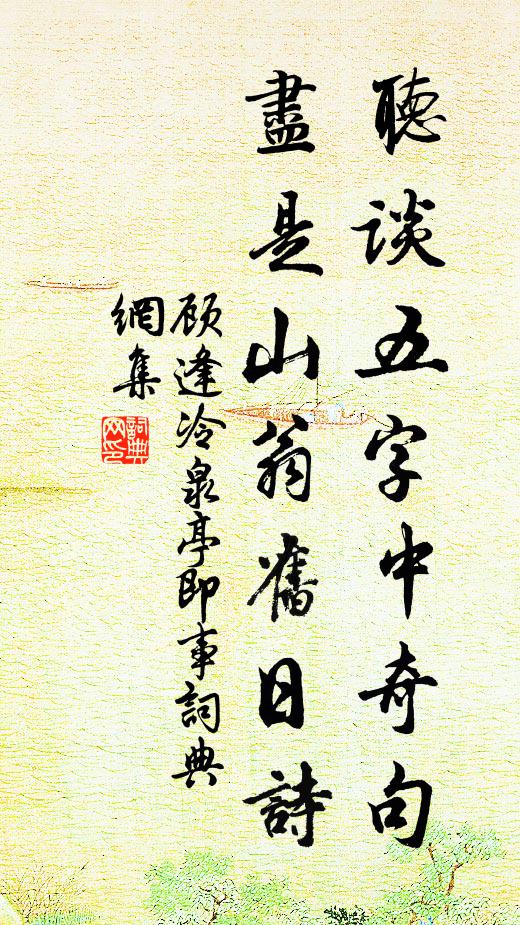 聽談五字中奇句
盡是山翁舊日詩
顧逢冷泉亭即事詞典
網集
詞典
网印